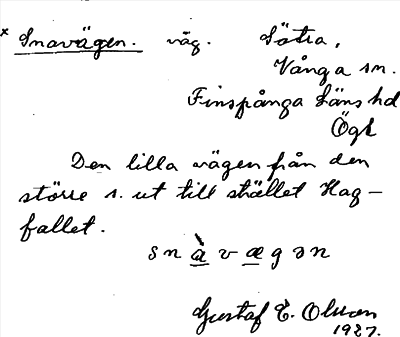 × Snavägen. väg. Sötra,
Vånga sn.
Finspånga läns hd
Ögl
Den lilla vägen från den
större s. ut till stället Hag-
fallet.
s n à v æ g ə n
Gustaf E. Olsson
1927.